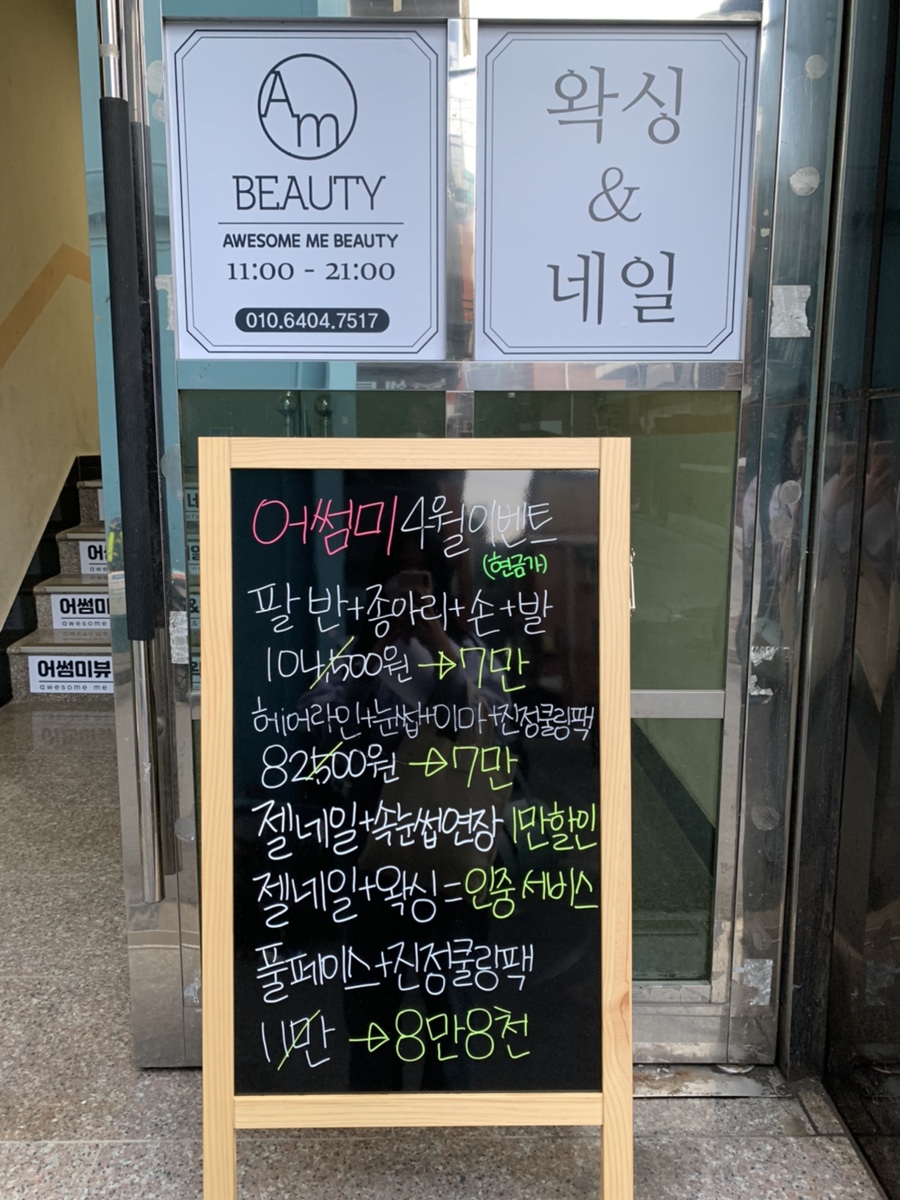 Am
BEAUTY
AWESOME ME BEAUTY
11:00 - 21:00
010.6404.7517
왁싱
&
네일
어썸미 4월이벤트
(현금가)
팔 반+종아리+손+발
104,500원 → 7만
헤어라인+눈썹+이마+진정쿨링팩
82,500원 → 7만
젤네일+속눈썹연장 1만할인
젤네일+왁싱=인중 서비스
풀페이스+진정쿨링팩
11만 → 8만8천
어썸미
awesome
어썸미뷰
awesome me